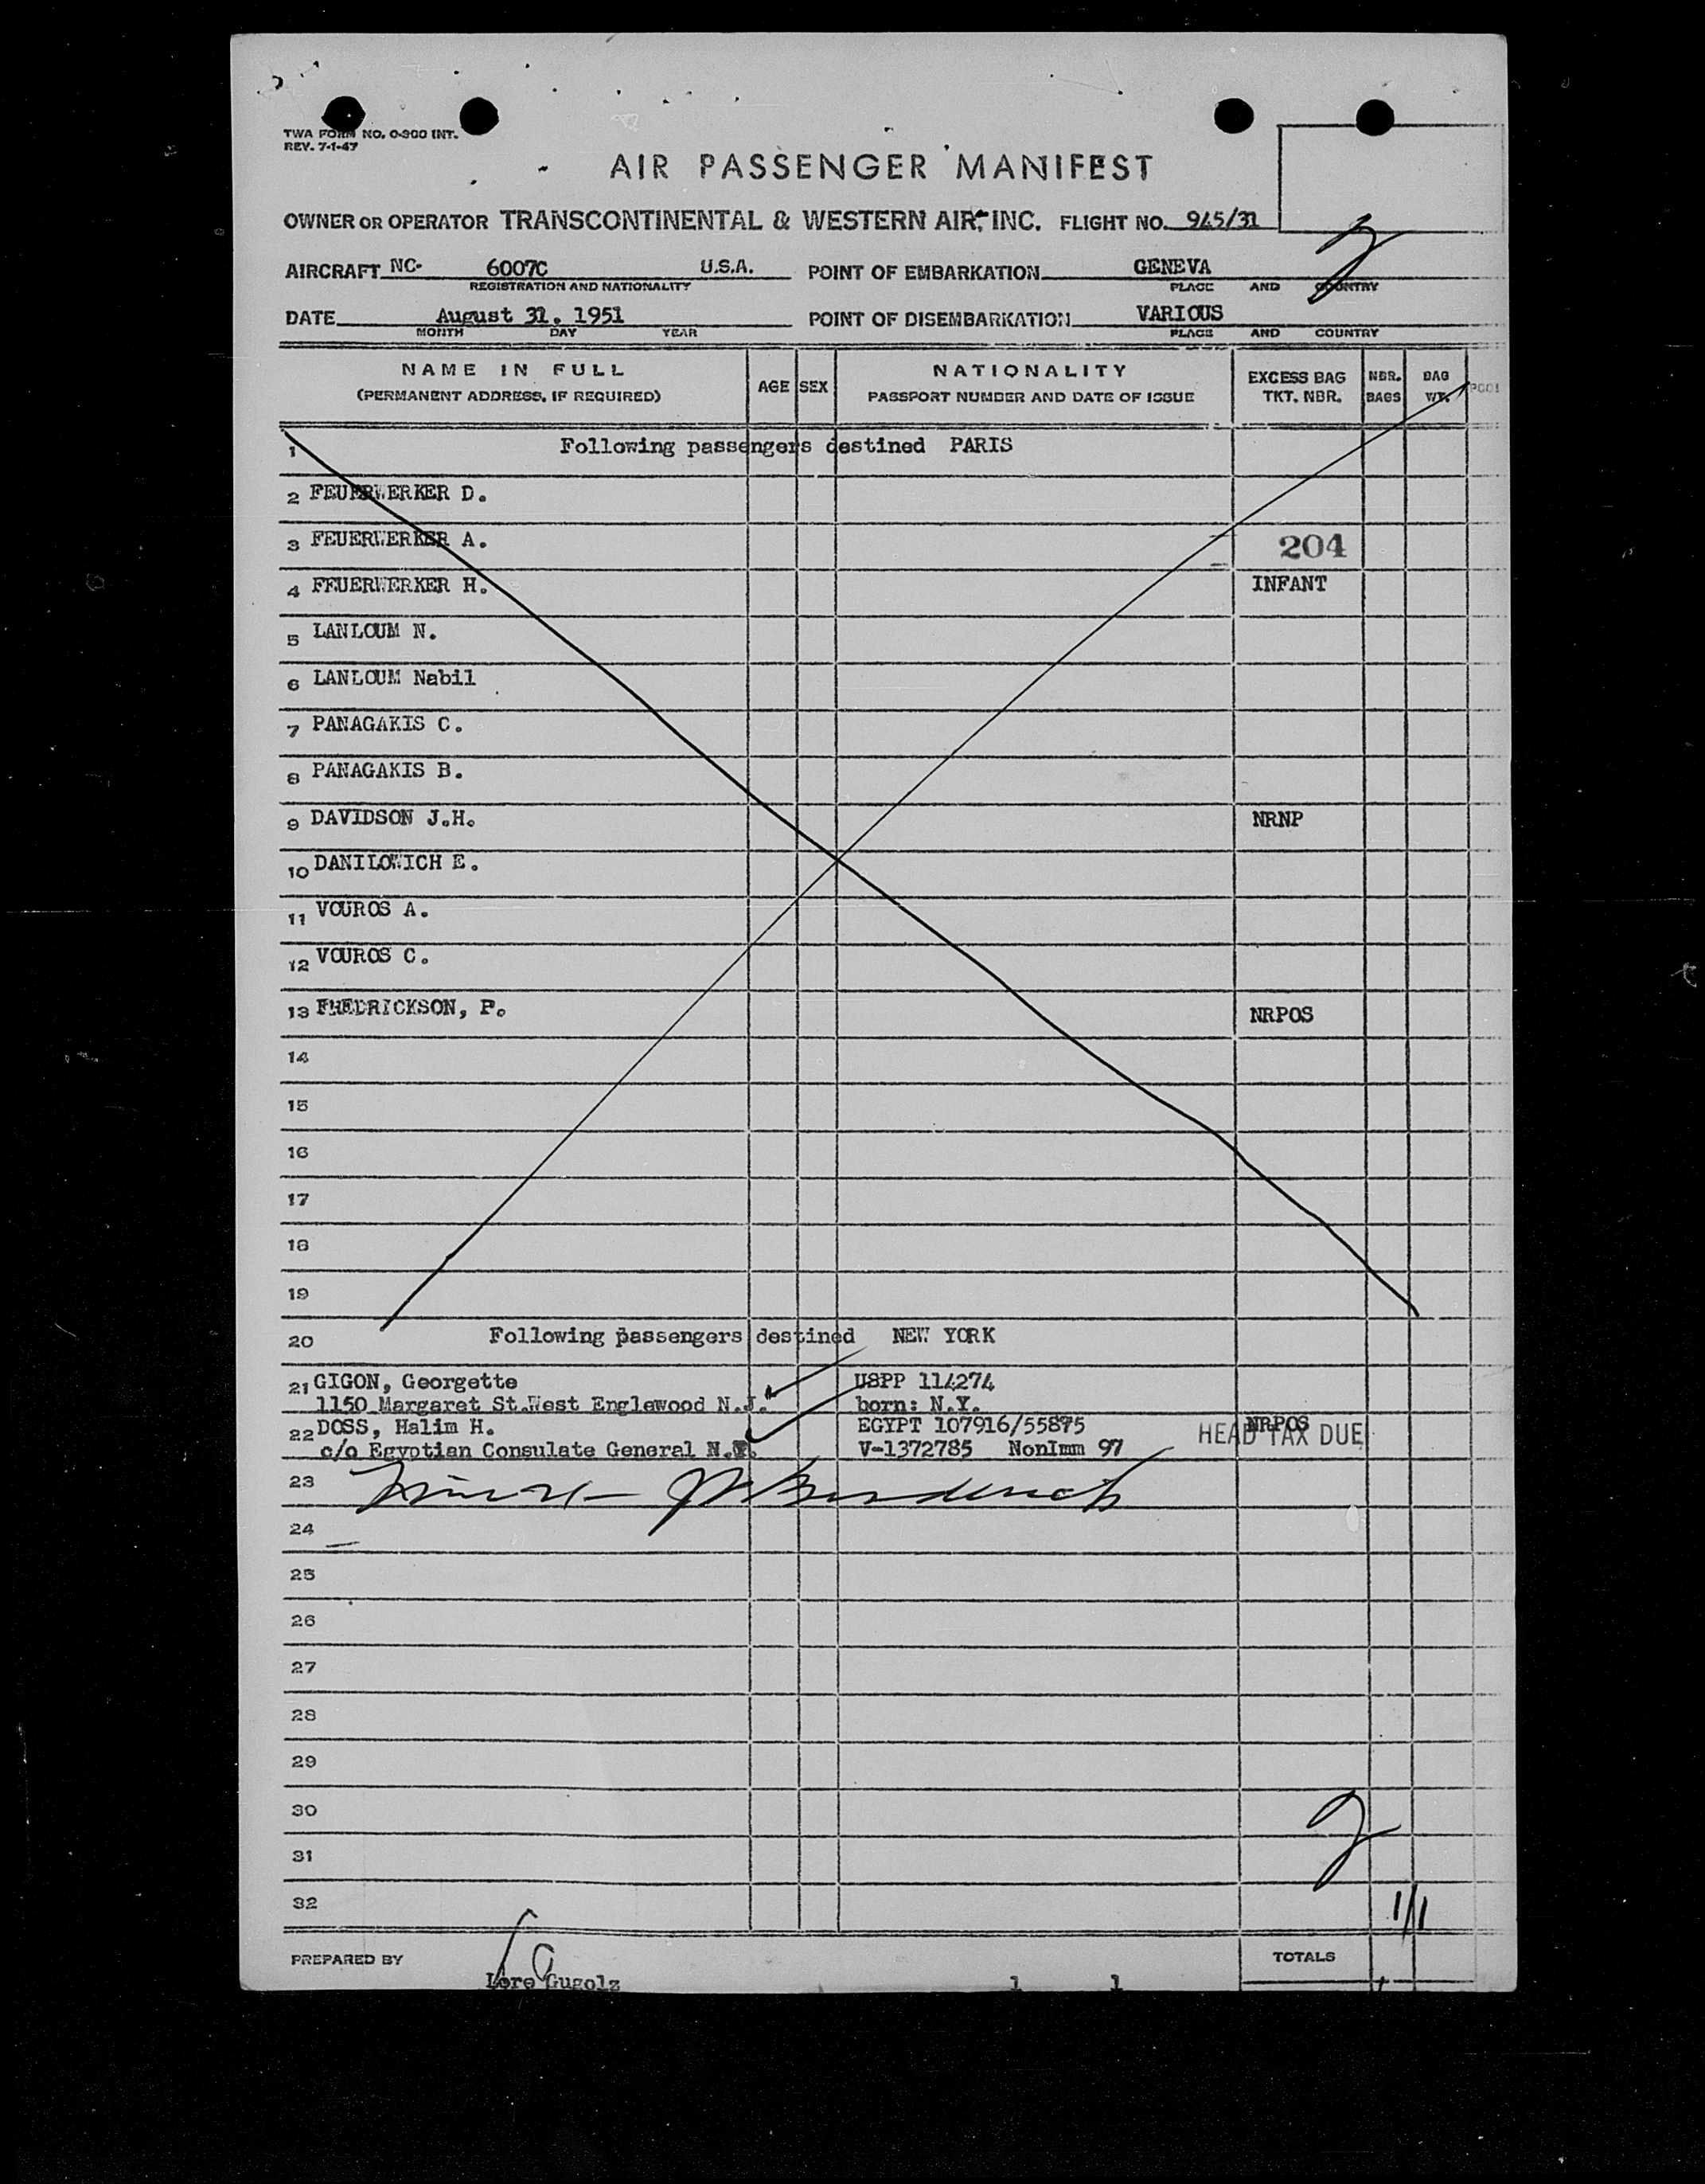 TWA FORM NO. O-300 INT.
REV. 7-1-47
AIR PASSENGER MANIFEST
OWNER OR OPERATOR TRANSCONTINENTAL & WESTERN AIR, INC. FLIGHT NO. 945/31
2
AIRCRAFT NC- 6007C U.S.A. POINT OF EMBARKATION GENEVA
REGISTRATION AND NATIONALITY PLACE AND COUNTRY
DATE August 31, 1951 POINT OF DISEMBARKATION VARIOUS
MONTH DAY YEAR PLACE AND COUNTRY
NAME IN FULL
(PERMANENT ADDRESS, IF REQUIRED) AGE SEX NATIONALITY
PASSPORT NUMBER AND DATE OF ISSUE EXCESS BAG
TKT. NBR. NBR.
BAGS BAG
WT.
1 Following passengers destined PARIS
2 FEUERWERKER D.
3 FEUERWERKER A. 204
4 FEUERWERKER H. INFANT
5 LANLOUM N.
6 LANLOUM Nabil
7 PANAGAKIS C.
8 PANAGAKIS B.
9 DAVIDSON J.H. NRNP
10 DANILOWICH E.
11 VOUROS A.
12 VOUROS C.
13 FREDRICKSON, P. NRPOS
14
15
16
17
18
19
20 Following passengers destined NEW YORK
21 GIGON, Georgette USPP 114274
1150 Margaret St.West Englewood N.J. born: N.Y.
22 DOSS, Halim H. EGYPT 107916/55875 NRPOS
c/o Egyptian Consulate General N.Y. V-1372785 NonImm 97 HEAD TAX DUE
23
24
25
26
27
28
29
30
2
31
32 1/1
PREPARED BY Lore Gugolz 1 1 TOTALS